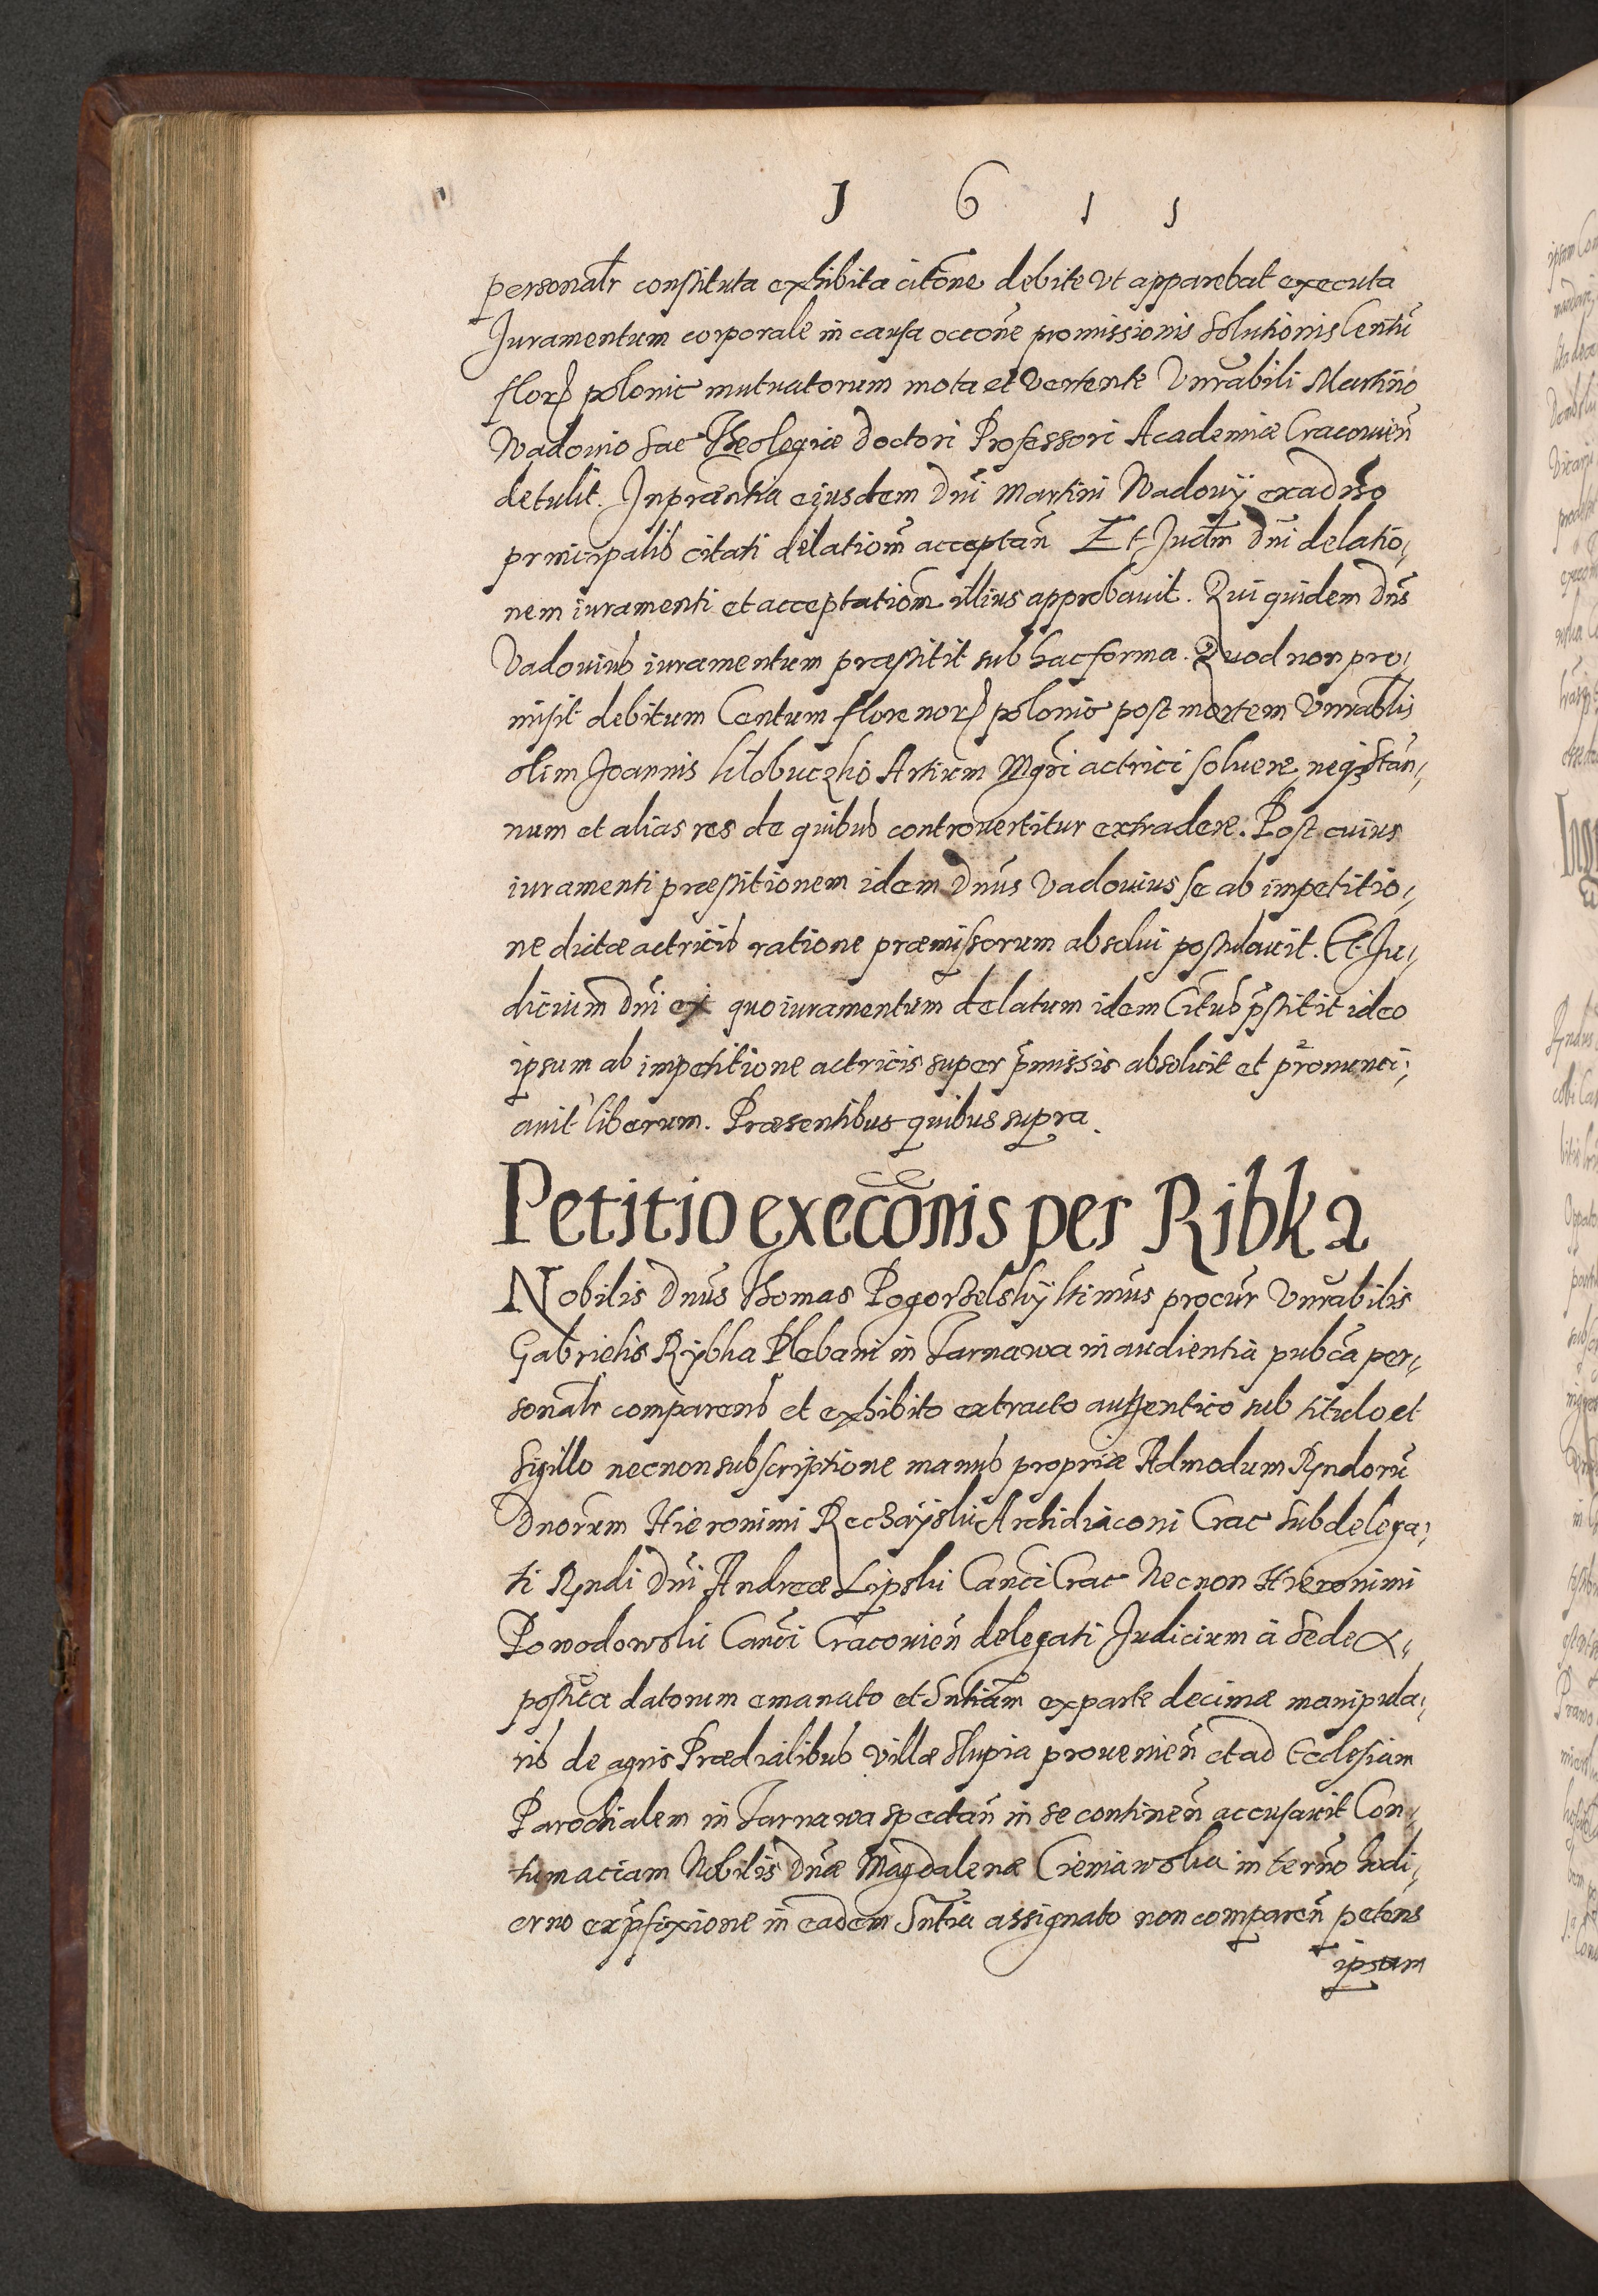 1 6 1 1
personalr constituta exhibita citone debite ut apparebat executa
Juramentum corporale in causa occone promissionis solutionis Centũ
flor polonic mutuatorum mota et vertente Vnrabili Martino
Wadouio Sac Theologiæ Doctori Professori Academiæ Cracouień
detulit. In præntia ejusdem Dni Martini Wadouÿ ex aduso
principalis citati delationem acceptań Et Judm Dni delatio,
nem iuramenti et acceptationem illius approbauit. Qui quidem Dns
Vadouius iuramentum præstitit sub hac forma. Quod non pro,
misit debitum Centum florenor polonic post mortem Vnrablis
olim Joannis Artium Mgri actrici soluere, neq stan,
num et alias res de quibus controuertitur extradere. Post cuius
iuramenti præstitionem idem Dnus Vadouius se ab impetitio,
ne dictæ actricis ratione præmissorum absolui postulauit. Et Ju,
dicium Dni ex quo iuramentum delatum idem Citus pstitit ideo
ipsum ab impetitione actricis super pmissis absoluit et pronunci,
auit liberum. Præsentibus quibus supra.
Petitio execõnis per Ribka
Nobilis Dnus Thomas Pogorselskÿ ltimus procur Vnrabilis
Gabrielis Rÿbka Plebani in Tarnawa in audientia pubca per,
sonalr comparens et exhibito extracto authentico sub titulo et
Sigillo necnon subscriptione manus propriæ Admodum Rndorũ
Dnorum Hieronimi Rechaÿski Archidiaconi Crac Subdelega,
ti Rndi Dni Andreæ Lipski Canci Crac Necnon Hieronimi
Powodowski Canci Cracouień delegati Judicium à Sede A,
postlica datorum emanato et Sntiam ex parte decimæ manipula,
ris de agris Prædialibus villæ Slupia prouenień et ad Ecclesiam
Parochialem in Tarnawa spectań in se contineń accusauit Con,
tumaciam Nobilis Dnæ Magdalenæ Cieniawska in terno hodi,
erno ex pfixione in eadem Sntia assignato non compareń petens
ipsam